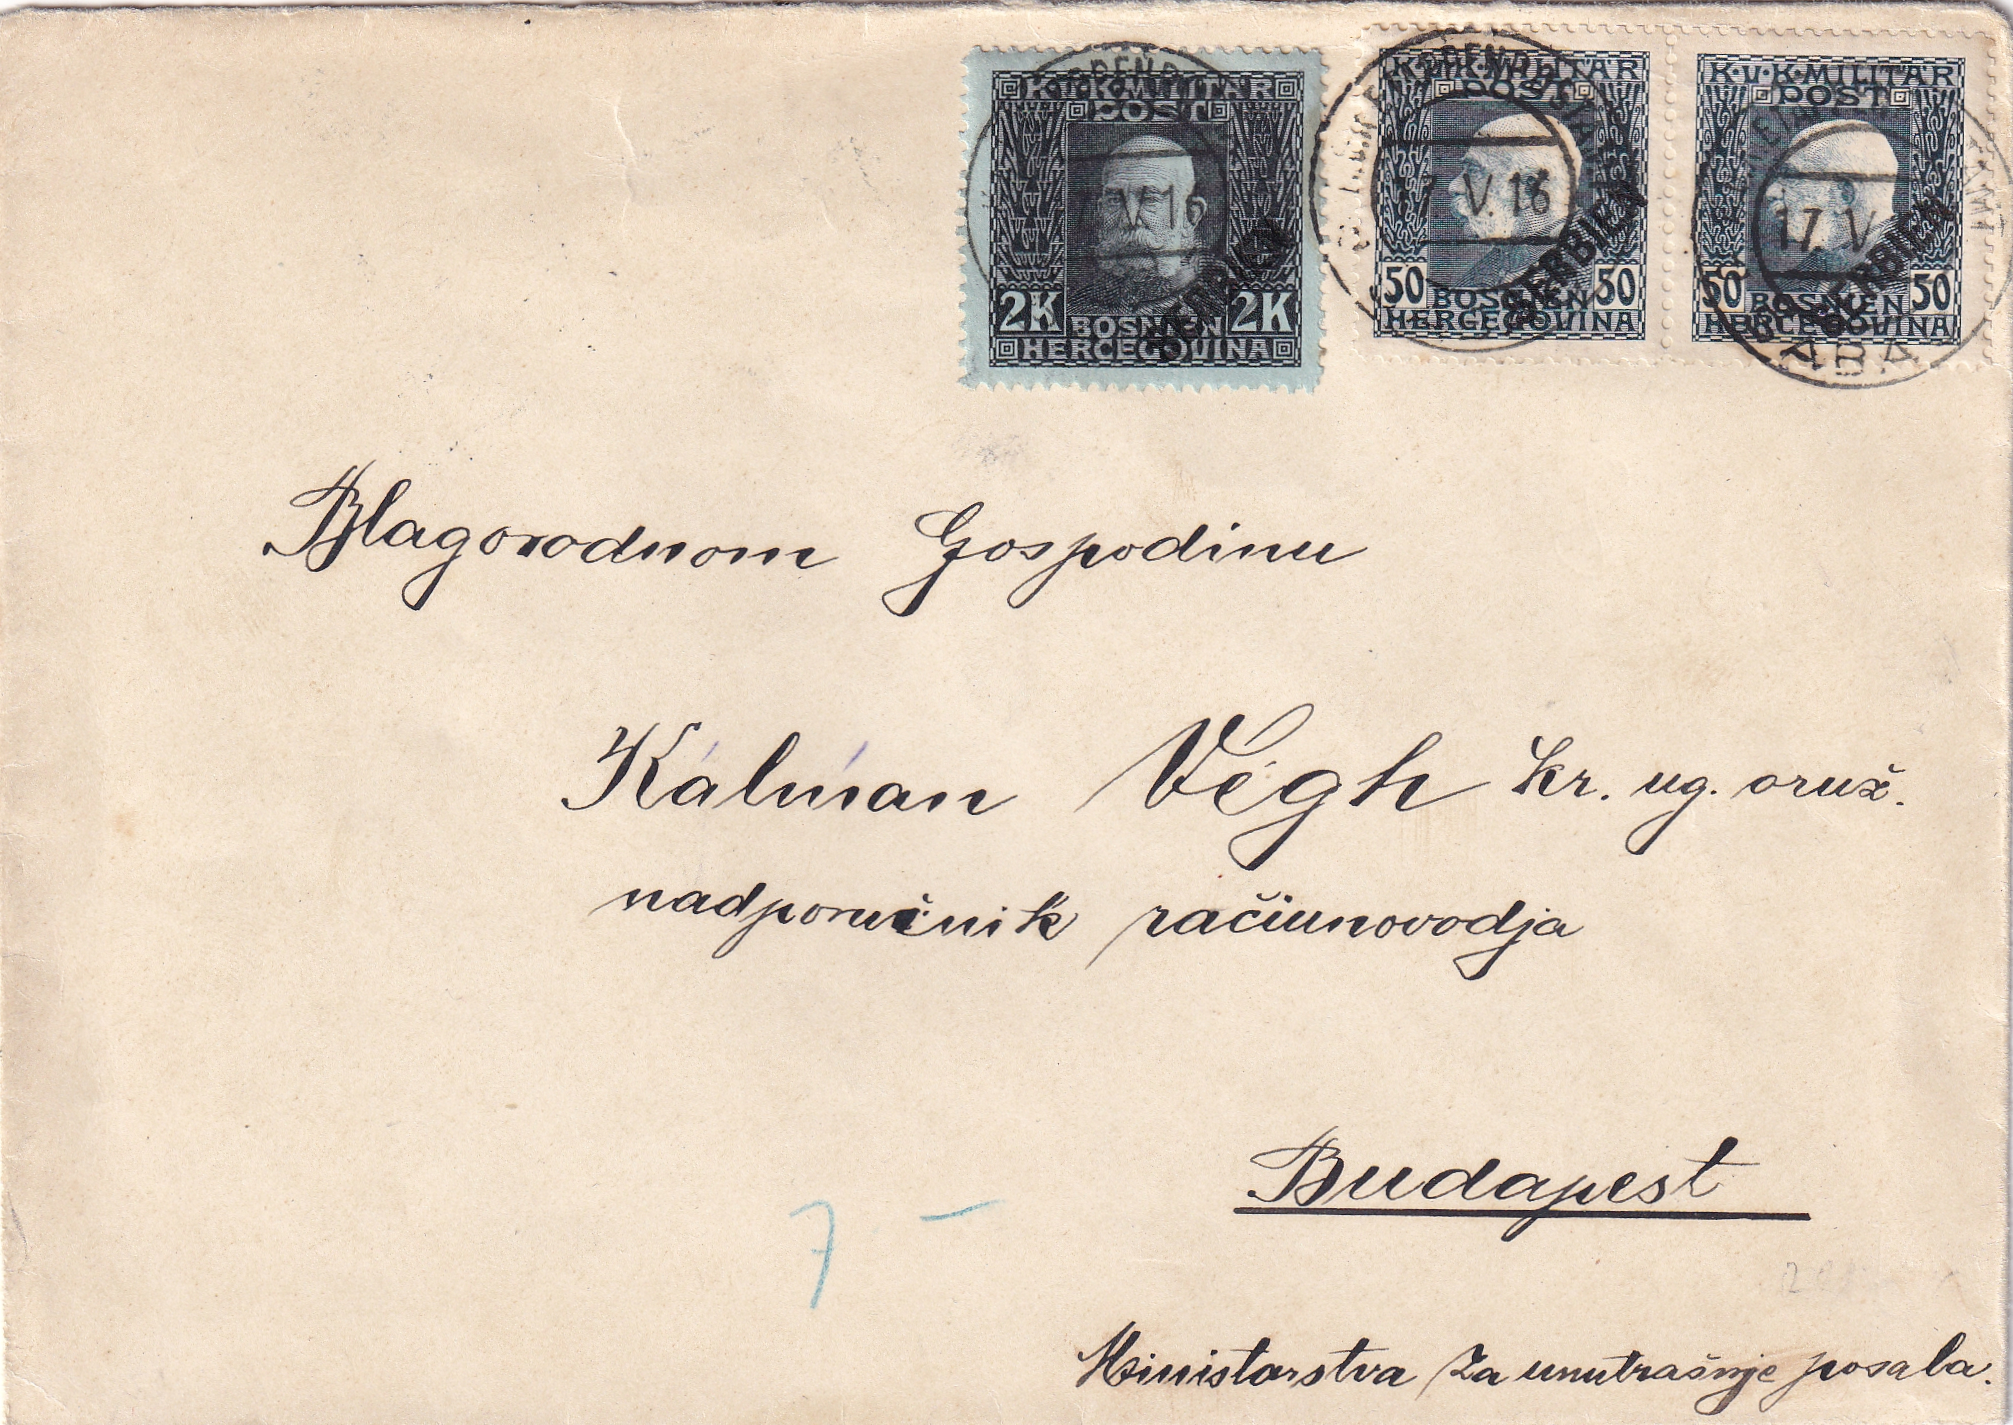 K.u.K. MILITÄR
POST
2K 2K
BOSNIEN
HERCEGOVINA
K.u.K. MILITÄR
POST
50 50
BOSNIEN
HERCEGOVINA
SERBIEN
17 V. 16
K.u.K. MILITÄR
POST
50 50
BOSNIEN
HERCEGOVINA
SERBIEN
17. V
Blagorodnom Gospodinu
Kálmán Végh kr. ug. oruž.
nadporučnik računovodja
Budapest
7 –
Ministarstva za unutrašnje posala.